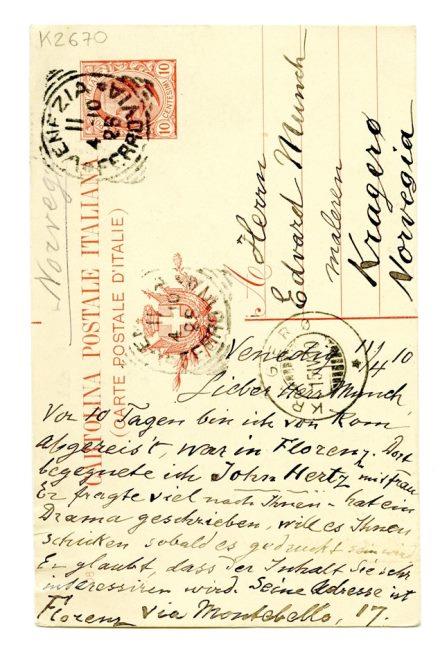 K2670
VENEZIA
11
4-10
FERROVIA
10
10
CENTESIMI
CARTOLINA POSTALE ITALIANA
(CARTE POSTALE D'ITALIE)
Norveg
A Herrn
Edvard Munch
maleren
Kragerø
Norvegia
KRAGERØ
Venedig 11/4 10
Lieber Herr Munch,
Vor 10 Tagen bin ich von Rom
abgereist, war in Florenz. Dort
begegnete ich John Hertz mit Frau
Er fragte viel nach Ihnen - hat ein
Drama geschrieben, will es Ihnen
schicken sobald es gedruckt sein wird
Er glaubt, dass der Inhalt Sie sehr
interessiren wird. Seine Adresse ist
Florenz Via Montebello, 17.